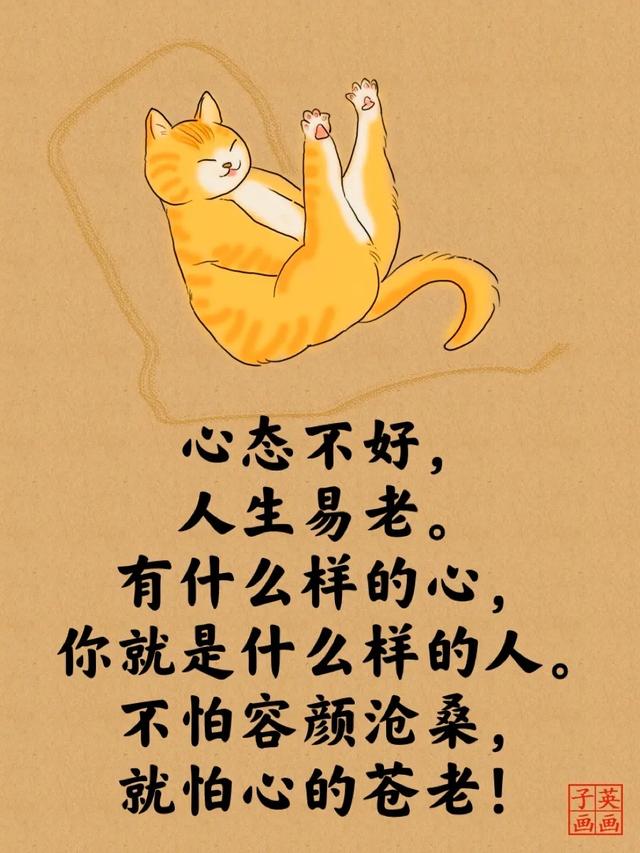 心态不好，
人生易老。
有什么样的心，
你就是什么样的人。
不怕容颜沧桑，
就怕心的苍老！
英画
子画